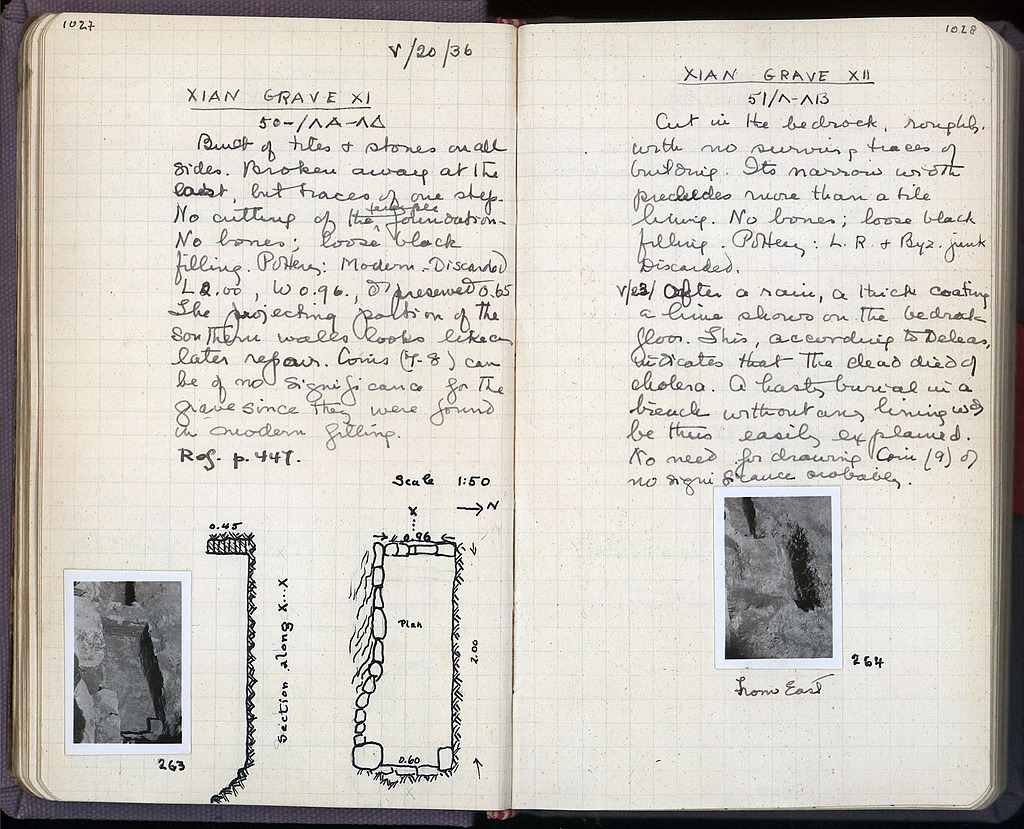 1027
V/20/36
XIAN GRAVE XI
50-/ΛΔ-ΛΔ
Built of tiles & stones on all
sides. Broken away at the
east, but traces of one step.
No cutting of the foundation-
No bones; loose black
filling. Pottery: Modern - Discarded
L 2.00, W 0.96., D preserved 0.65
The projecting portion of the
southern walls looks like a
later repair. Coins (7-8) can
be of no significance for the
grave since they were found
in modern filling.
Ref. p. 447.
Scale 1:50
X
N
0.45
0.96
Section along X...X
Plan
2.00
0.60
X
263
1028
XIAN GRAVE XII
51/Λ-ΛB
Cut in the bedrock, roughly,
with no surviving traces of
building. Its narrow width
precludes more than a tile
lining. No bones; loose black
filling. Pottery: L. R. & Byz. junk
Discarded.
V/23/ After a rain, a thick coating
of lime shows on the bedrock
floor. This, according to Deleas,
indicates that the dead died of
cholera. A hasty burial in a
trench without any lining would
be thus easily explained.
No need for drawing Coin (9) of
no significance probably.
264
from East